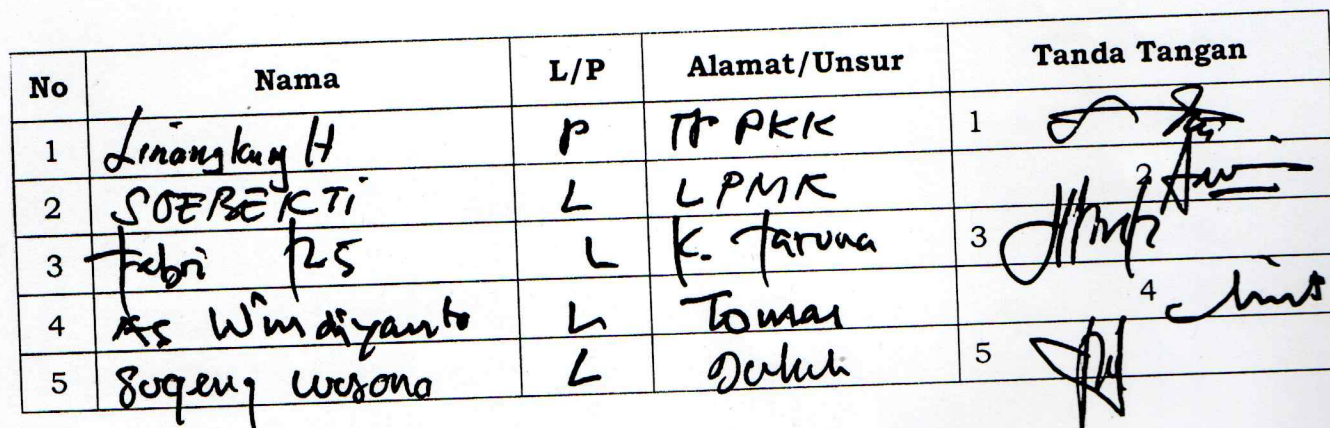 No Nama L/P Alamat/Unsur Tanda Tangan
1 Linangkung H P TP PKK 1
2 SOEBEKTi L LPMK 2
3 Febri RS L K. Taruna 3
4 As Windiyanto L Tomas 4
5 Sogeng wasono L Dukuh 5